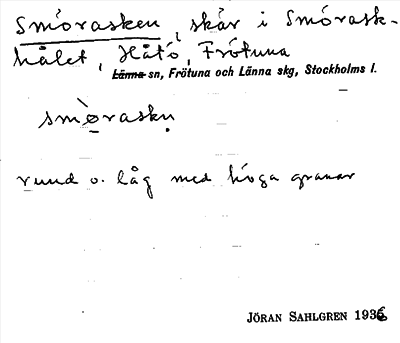 Smörasken, skär i Smörask-
hålet, Håtö, Frötuna
Länna sn, Frötuna och Länna skg, Stockholms l.
smòrasḳṇ
rund o. låg med höga granar
JÖRAN SAHLGREN 1936